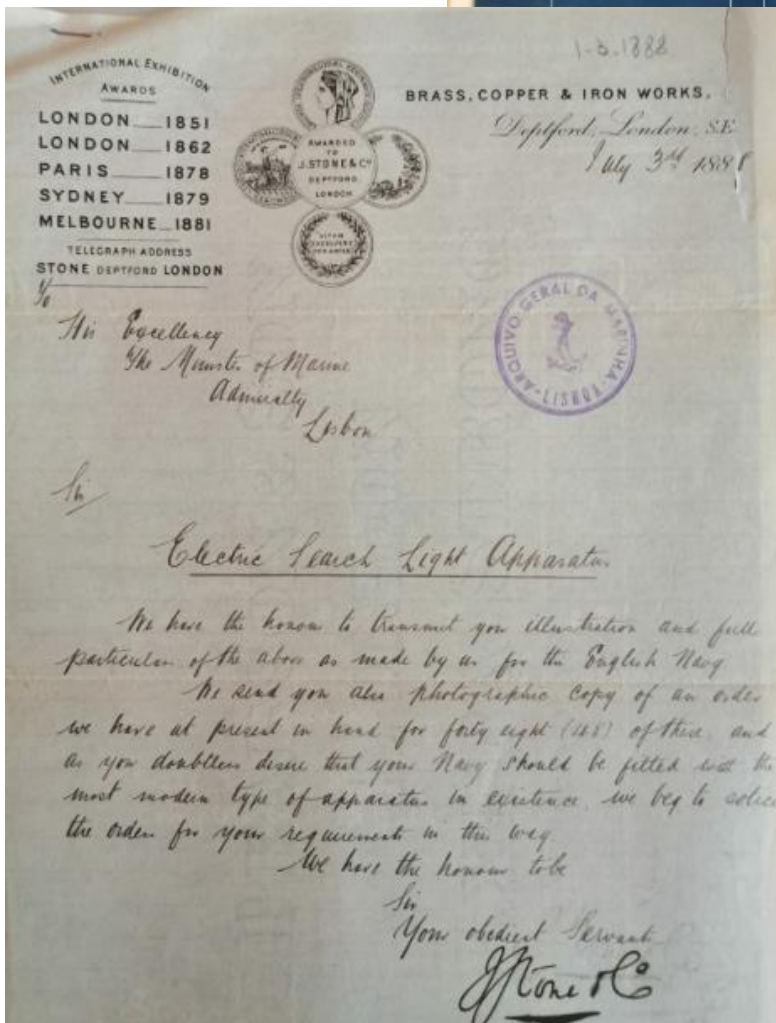 1-3.1888
INTERNATIONAL EXHIBITION
AWARDS
LONDON 1851
LONDON 1862
PARIS 1878
SYDNEY 1879
MELBOURNE 1881
TELEGRAPH ADDRESS
STONE DEPTFORD LONDON
AWARDED
TO
J. STONE & Co
DEPTFORD
LONDON
BRASS, COPPER & IRON WORKS,
Deptford, London, S.E.
July 3rd 1888
ARQUIVO GERAL DA MARINHA
LISBOA
To
His Excellency
The Minister of Marine
Admiralty
Lisbon
Sir
Electric Search Light Apparatus
We have the honour to transmit you illustration and full
particulars of the above as made by us for the English Navy
We send you also photographic copy of an order
we have at present in hand for forty eight (48) of these, and
as you doubtless desire that your Navy should be fitted with the
most modern type of apparatus in existence, we beg to solicit
the orders for your requirements in this way.
We have the honour to be
Sir
Your obedient Servant
J Stone & Co